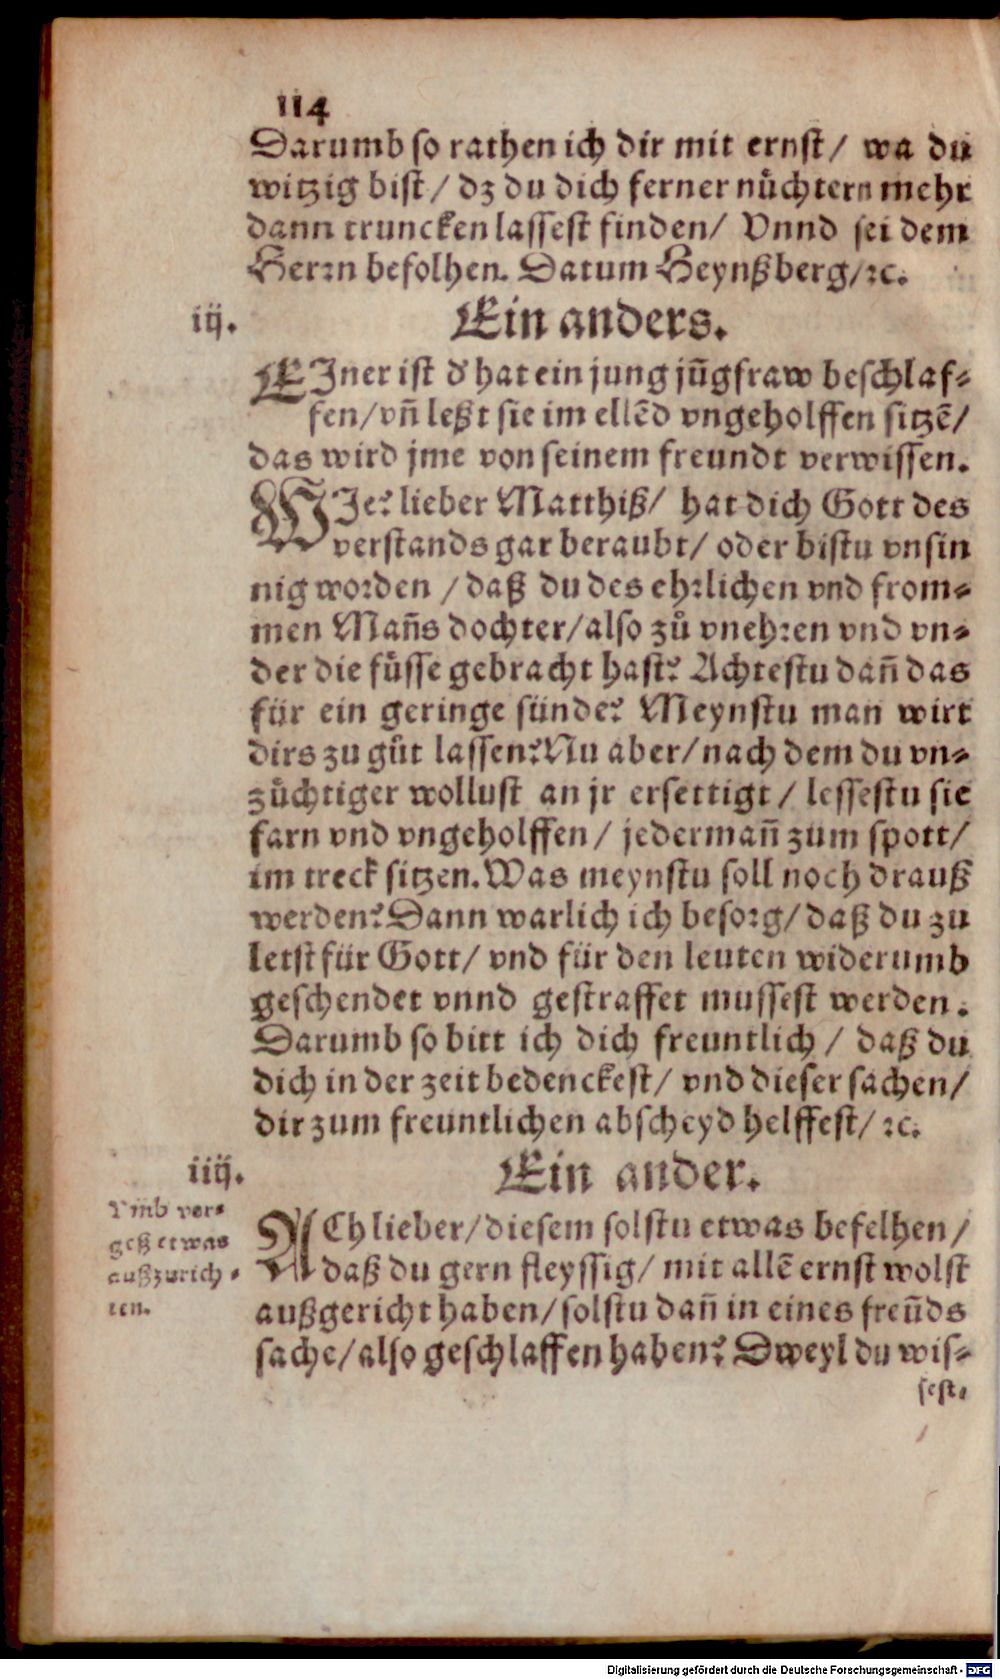 114
Darumb so rathen ich dir mit ernst/ wa du
witzig bist/ dz du dich ferner nüchtern mehr
dann truncken lassest finden/ Vnnd sei dem
Herrn befolhen. Datum Heynßberg/ ꝛc.
iij. Ein anders.
EJner ist d' hat ein jung jũgfraw beschlaf-
fen/ vñ leßt sie im ellẽd vngeholffen sitzẽ/
das wird jme von seinem freundt verwissen.
WJe? lieber Matthiß/ hat dich Gott des
verstands gar beraubt/ oder bistu vnsin
nig worden/ daß du des ehrlichen vnd from-
men Mañs dochter/ also zů vnehren vnd vn-
der die füsse gebracht hast? Achtestu dañ das
für ein geringe sünde? Meynstu man wirt
dirs zu gůt lassen? Nu aber/ nach dem du vn-
züchtiger wollust an jr ersettigt/ lessestu sie
farn vnd vngeholffen/ jedermañ zum spott/
im treck sitzen. Was meynstu soll noch drauß
werden? Dann warlich ich besorg/ daß du zu
letst für Gott/ vnd für den leuten widerumb
geschendet vnnd gestraffet mussest werden.
Darumb so bitt ich dich freuntlich/ daß du
dich in der zeit bedenckest/ vnd dieser sachen/
dir zum freuntlichen abscheyd helffest/ ꝛc.
iiij. Ein ander.
Vmb ver-
geß etwas
außzurich-
ten.
ACh lieber/ diesem solstu etwas befelhen/
daß du gern fleyssig/ mit allẽ ernst wolst
außgericht haben/ solstu dañ in eines freũds
sache/ also geschlaffen haben? Dweyl du wis-
sest.
Digitalisierung gefördert durch die Deutsche Forschungsgemeinschaft - DFG